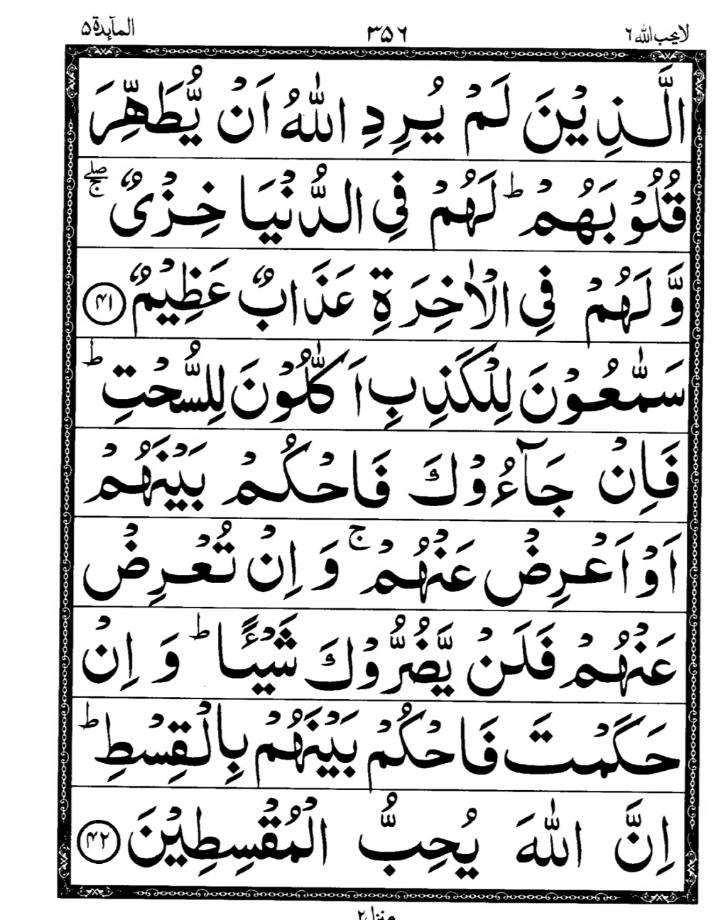 لا يحب الله ٦ ٣٥٦ المآىدة ۵
الَّذِيْنَ لَمْ يُرِدِ اللّٰهُ اَنْ يُّطَهِّرَ
قُلُوْبَهُمْ ؕ لَهُمْ فِى الدُّنْيَا خِزْىٌ ۖۚ
وَّلَهُمْ فِى الْاٰخِرَةِ عَذَابٌ عَظِيْمٌ ﴿۴۱﴾
سَمّٰعُوْنَ لِلْكَذِبِ اَكّٰلُوْنَ لِلسُّحْتِ ؕ
فَاِنْ جَآءُوْكَ فَاحْكُمْ بَيْنَهُمْ
اَوْ اَعْرِضْ عَنْهُمْ ۚ وَ اِنْ تُعْرِضْ
عَنْهُمْ فَلَنْ يَّضُرُّوْكَ شَيْـًٔا ؕ وَ اِنْ
حَكَمْتَ فَاحْكُمْ بَيْنَهُمْ بِالْقِسْطِ ؕ
اِنَّ اللّٰهَ يُحِبُّ الْمُقْسِطِيْنَ ﴿۴۲﴾
منزل ۲